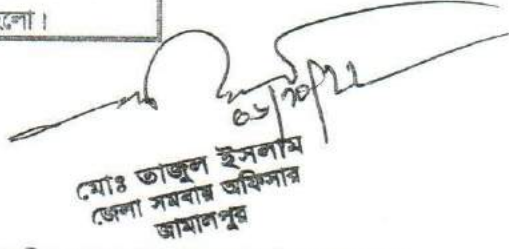 হলো।
০৬/১০/২২
মোঃ তাজুল ইসলাম
জেলা সমবায় অফিসার
জামালপুর